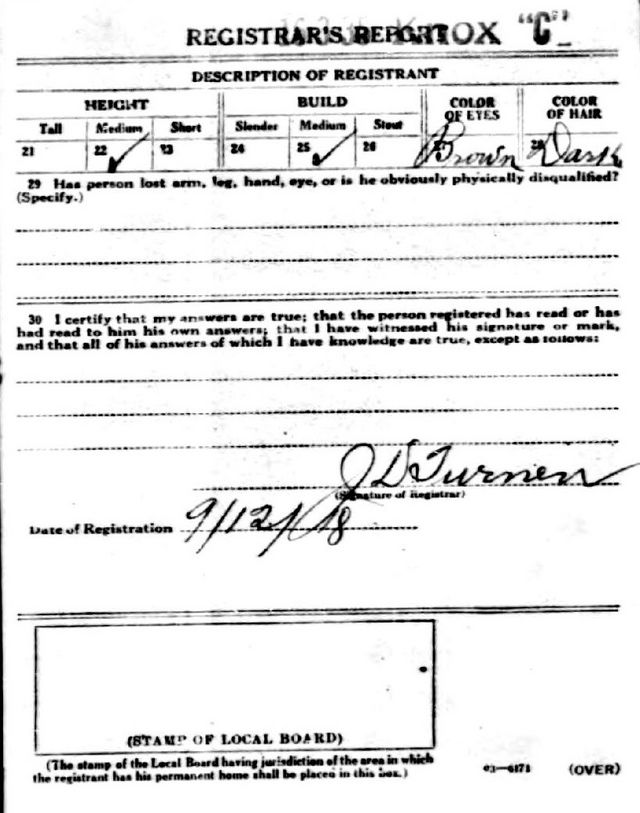 REGISTRAR'S REPORT KNOX "C"
DESCRIPTION OF REGISTRANT
HEIGHT BUILD COLOR OF EYES COLOR OF HAIR
Tall Medium Short Slender Medium Stout
21 22 ✓ 23 24 25 ✓ 26 27 Brown 28 Dark
29 Has person lost arm, leg, hand, eye, or is he obviously physically disqualified?
(Specify.)
30 I certify that my answers are true; that the person registered has read or has
had read to him his own answers; that I have witnessed his signature or mark,
and that all of his answers of which I have knowledge are true, except as follows:
J D Turner
(Signature of Registrar)
Date of Registration 9/12/18
(STAMP OF LOCAL BOARD)
(The stamp of the Local Board having jurisdiction of the area in which
the registrant has his permanent home shall be placed in this box.)
03—6171 (OVER)